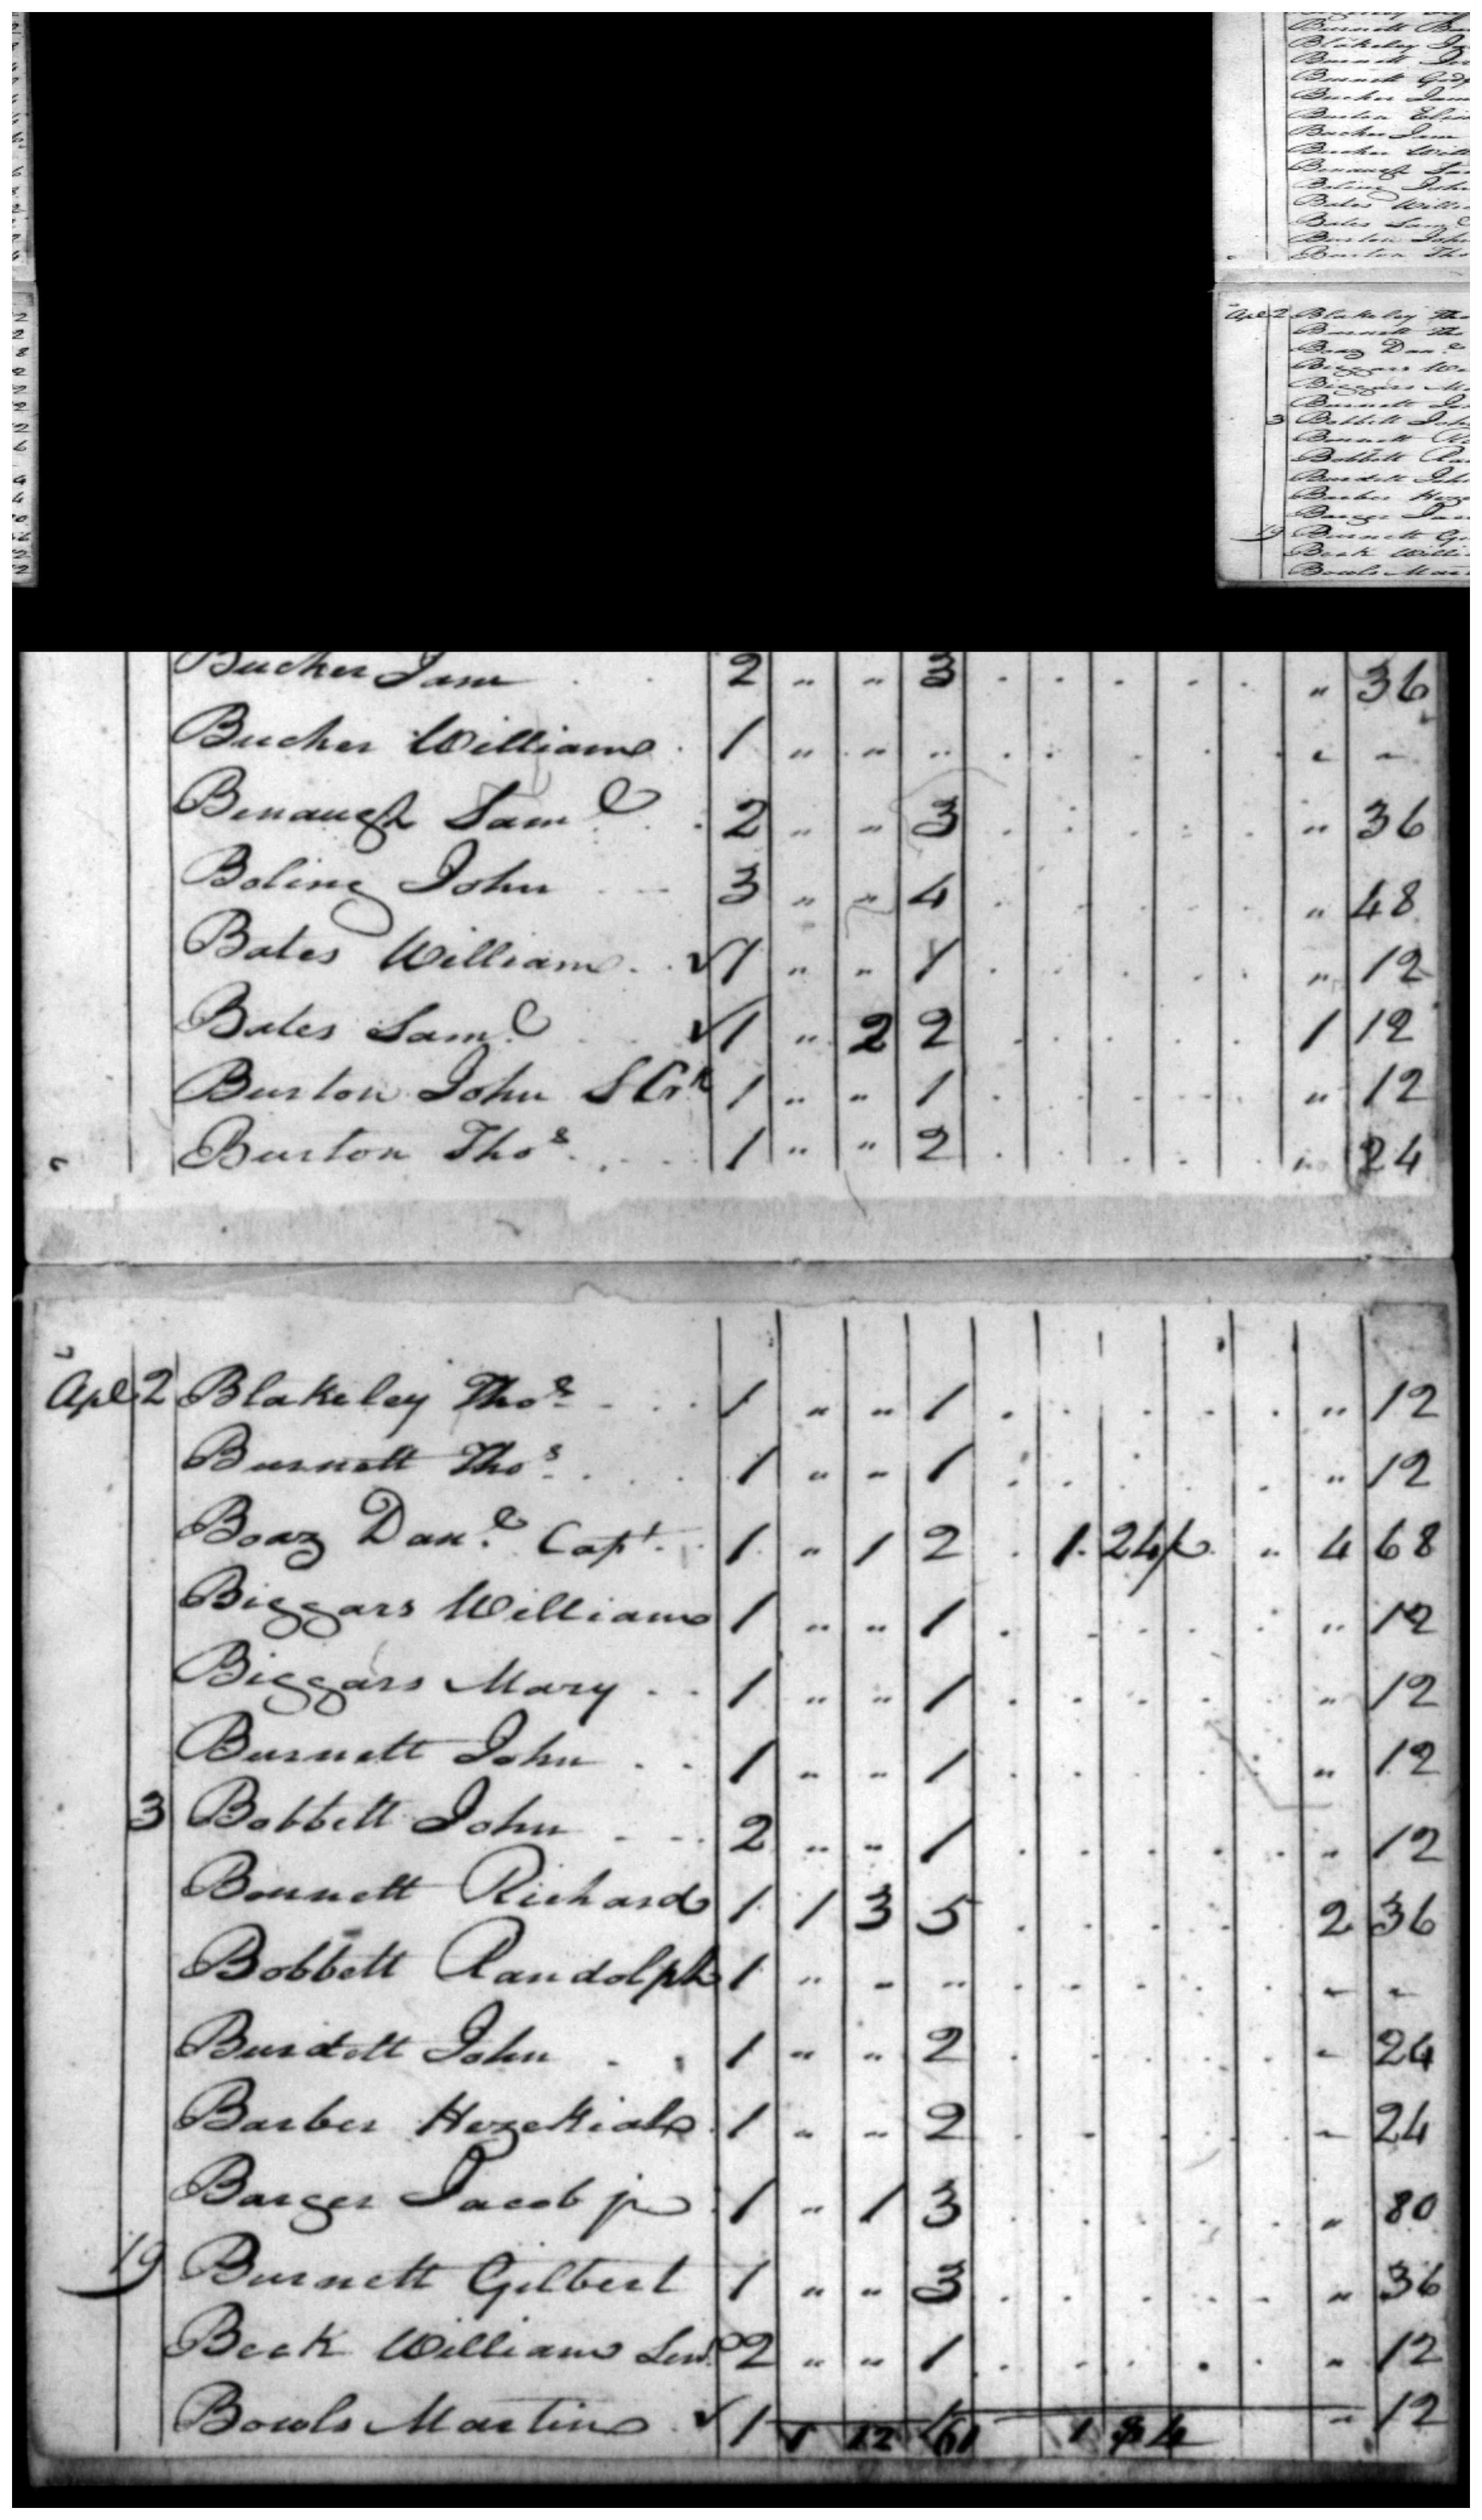 Bucher Jam 2 " " 3 " 36
Bucher William 1 " " " " "
Benaugh Saml 2 " " 3 " 36
Boling John 3 " " 4 " 48
Bates William √ 1 " " 1 " 12
Bates Saml √ 1 " 2 2 1 12
Burton John S Crk 1 " " 1 " 12
Burton Thos 1 " " 2 " 24
Apl 2 Blakeley Thos 1 " " 1 " 12
Burnett Thos 1 " " 1 " 12
Boaz Danl Capt 1 " 1 2 1. 24 " 4 68
Biggars William 1 " " 1 " 12
Biggars Mary 1 " " 1 " 12
Burnett John 1 " " 1 " 12
3 Bobbett John 2 " " 1 " 12
Bennett Richard 1 1 3 5 2 36
Bobbett Randolph 1 " " " " "
Burdett John 1 " " 2 " 24
Barber Hezekiah 1 " " 2 " 24
Barger Jacob jr 1 " 1 3 " 80
19 Burnett Gilbert 1 " " 3 " 36
Beck William Senr 2 " " 1 " 12
Bowls Martin √ 1 " 12
12 61